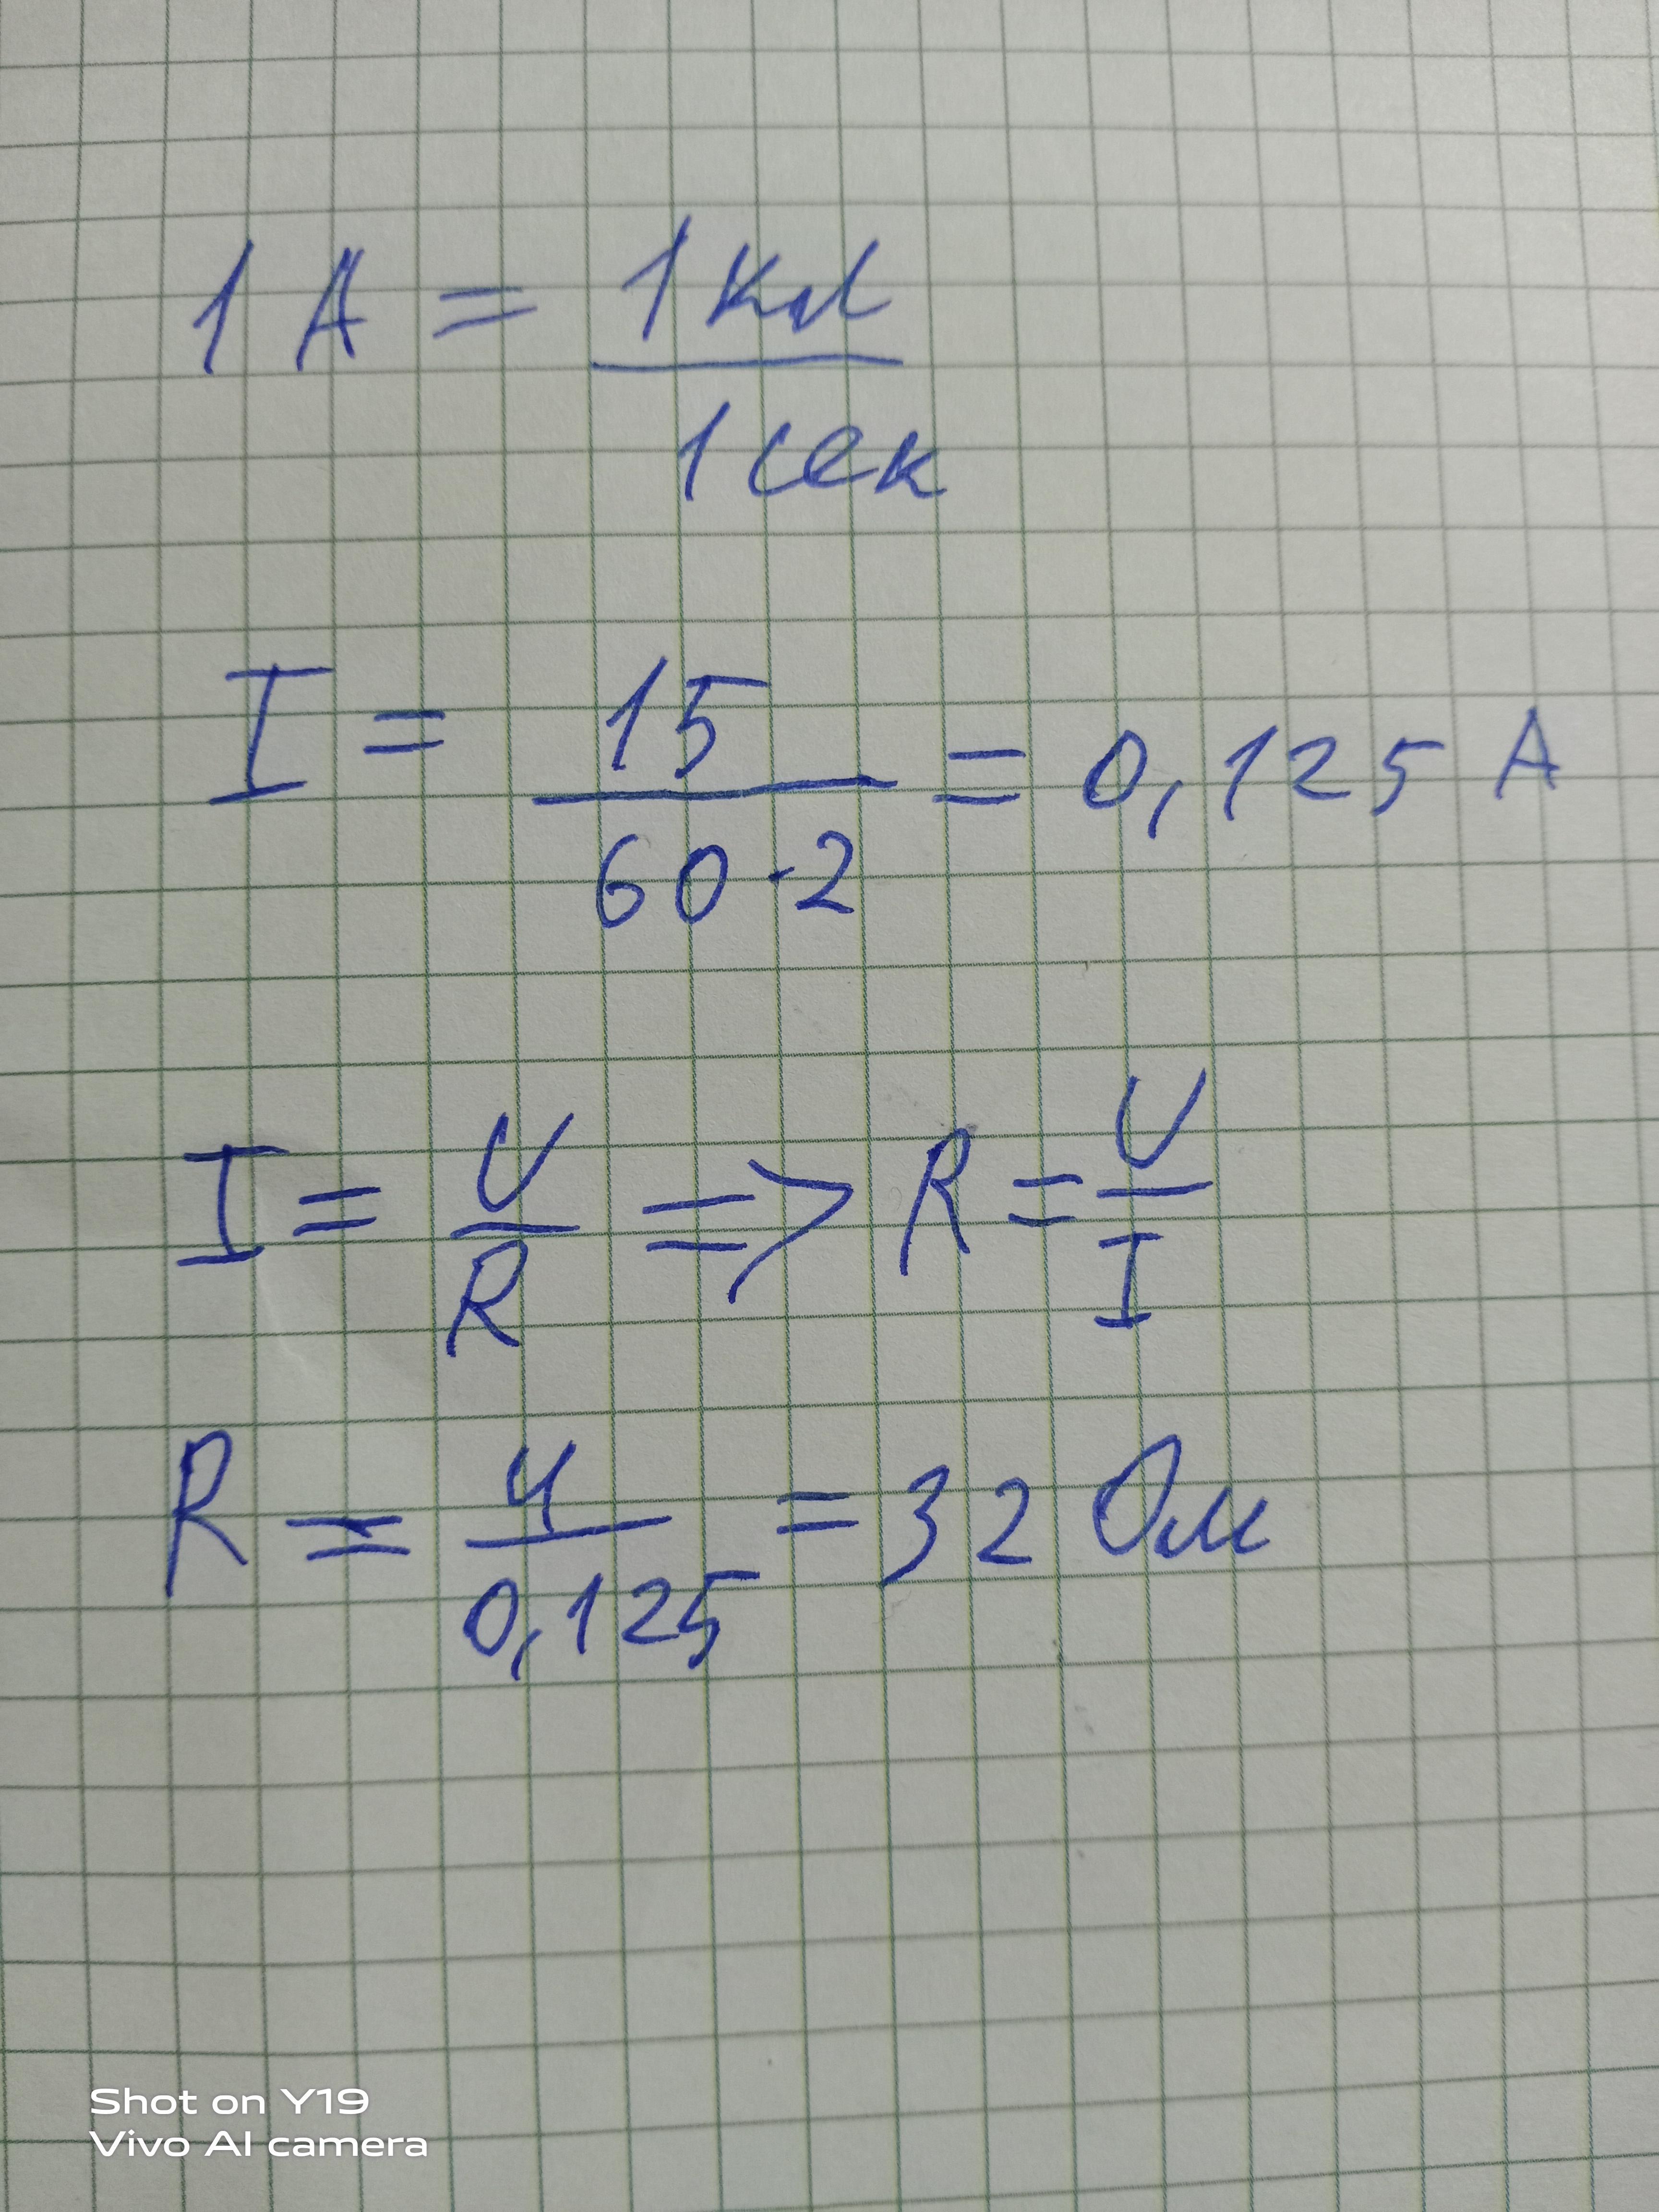 1 А = 1 Кл / 1 сек
I = 15 / 60·2 = 0,125 А
I = U / R => R = U / I
R = 4 / 0,125 = 32 Ом
Shot on Y19
Vivo AI camera